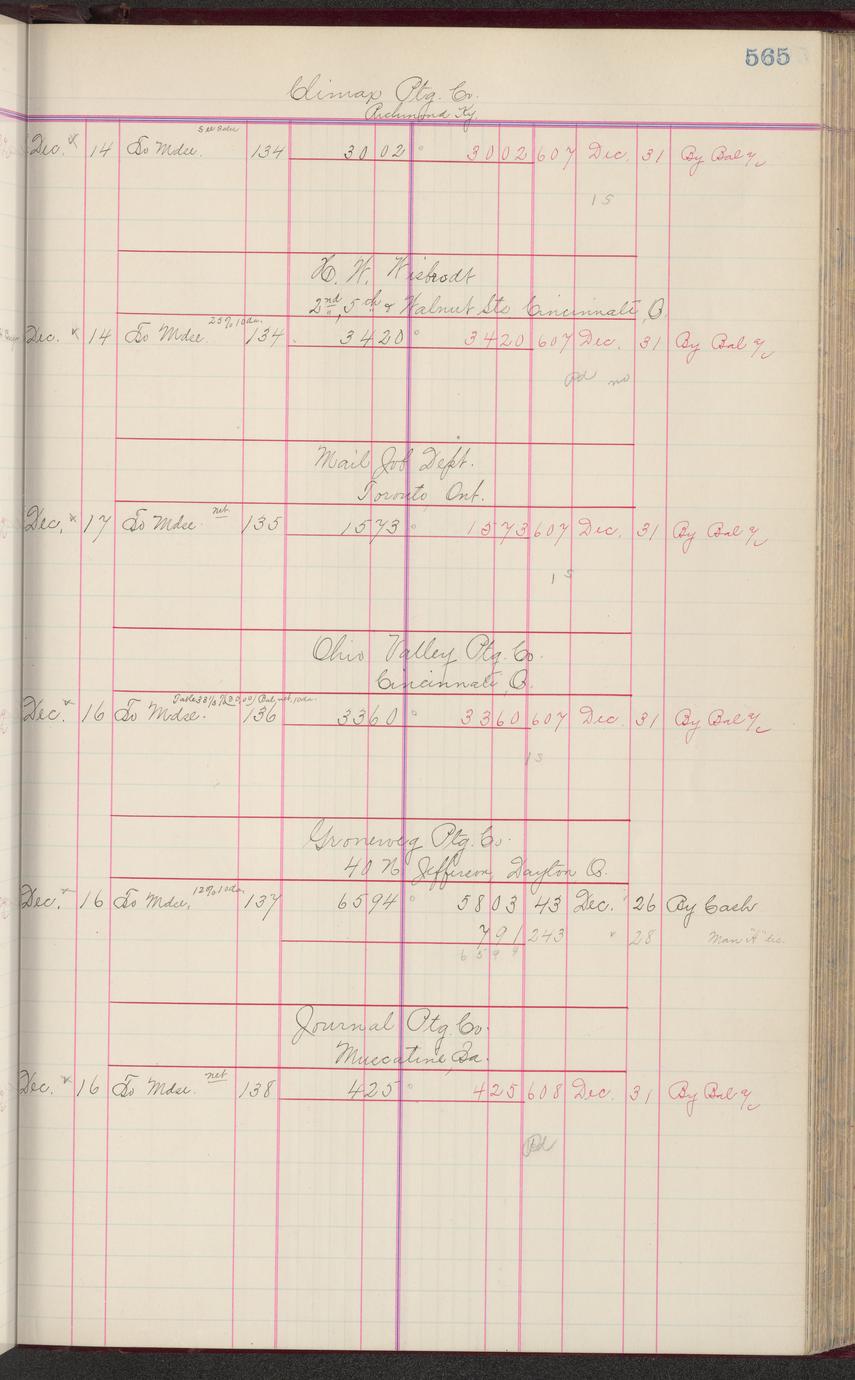 565
Climax Ptg. Co.
Richmond, Ky.
Dec. 14 To Mdse. 134 30 02 30 02 607 Dec. 31 By Bal a/c
15
H. W. Wisbrodt
2nd, 5th & Walnut Sts Cincinnati, O.
25% 10da.
Dec. 14 To Mdse. 134 34 20 34 20 607 Dec. 31 By Bal a/c
Pd no
Mail Job Dept.
Toronto, Ont.
Dec. 17 To Mdse. net 135 15 73 15 73 607 Dec. 31 By Bal a/c
15
Ohio Valley Ptg. Co.
Cincinnati, O.
Bal. net, 10da.
Dec. 16 To Mdse. 136 33 60 33 60 607 Dec. 31 By Bal a/c
15
Groneweg Ptg. Co.
40 N Jefferson, Dayton O.
12% 10da.
Dec. 16 To Mdse. 137 65 94 58 03 43 Dec. 26 By Cash
7 91 243 " 28 Man "A"
65 94
Journal Ptg. Co.
Muccatine, Ia.
Dec. 16 To Mdse. net 138 4 25 4 25 608 Dec. 31 By Bal a/c
Pd